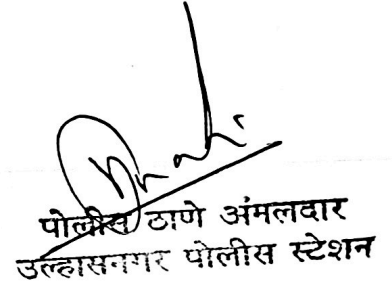 पोलीस ठाणे अंमलदार
उल्हासनगर पोलीस स्टेशन